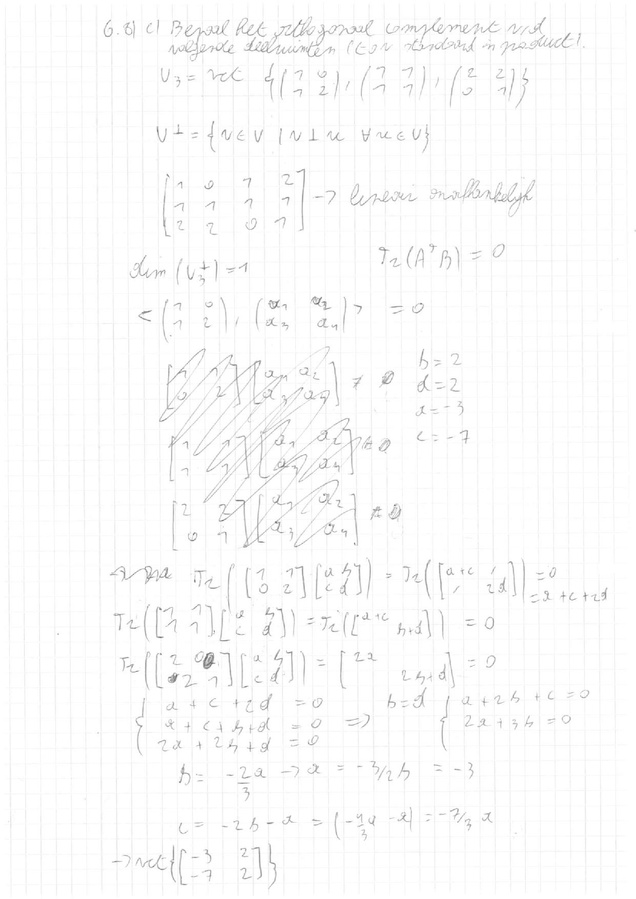 6.8) c) Bepaal het orthogonaal complement v/d
volgende deelruimten (t.o.v. standaard inproduct).
V₃ = vct {(1 0; 1 2), (1 1; 1 1), (2 2; 0 1)}
V⊥ = {v ∈ V | v ⊥ u ∀u ∈ U}
[1 0 1 2; 1 1 1 1; 2 2 0 1] → lineair onafhankelijk
dim(V₃⊥) = 1 Tr(AᵀB) = 0
<(1 0; 1 2), (a₁ a₂; a₃ a₄)> = 0
b = 2
d = 2
a = -3
c = -7
[1 1; 0 2][a₁ a₂; a₃ a₄] ≠ 0
[1 1; 1 1][a₁ a₂; a₃ a₄] ≠ 0
[2 2; 0 1][a₁ a₂; a₃ a₄] ≠ 0
Tr([1 1; 0 2][a b; c d]) = Tr([a+c , ; , 2d]) = 0
= a + c + 2d
Tr([1 1; 1 1][a b; c d]) = Tr([a+c ; b+d]) = 0
Tr([2 0; 2 1][a b; c d]) = [2a ; 2b+d] = 0
{a + c + 2d = 0
a + c + b + d = 0 ⇒ b = d {a + 2b + c = 0
2a + 2b + d = 0 2a + 3b = 0
b = -2/3 a → a = -3/2 b = -3
c = -2b - a = (4/3 a - a) = -7/3 a
→ vct{[-3 2; -7 2]}